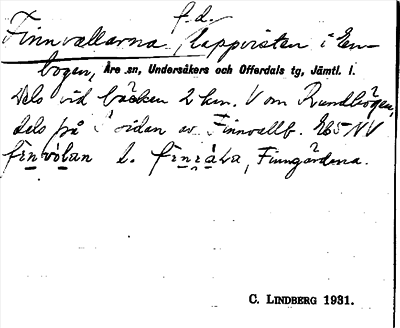 f. d.
Finnvallarna, lappvisten i En-
bogen, Åre sn, Undersåkers och Offerdals tg, Jämtl. l.
Dels vid bäcken 2 km. V om Rundhögen,
dels på sidan av Finnvallb. Eb5NV
finvólan l. Finngårdena.
C. LINDBERG 1931.